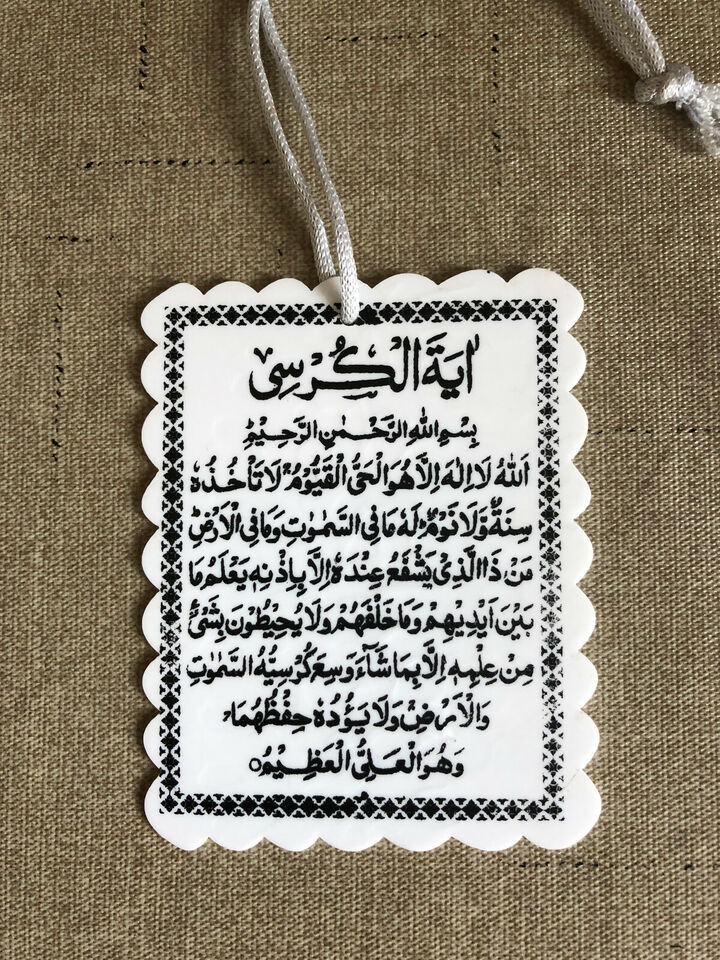 اٰيَةَ الْكُرْسِى
بِسْمِ اللهِ الرَّحْمٰنِ الرَّحِيْمِ
اَللهُ لَا اِلٰهَ اِلَّا هُوَ الْحَىُّ الْقَيُّوْمُ ۚ لَا تَاْخُذُهٗ
سِنَةٌ وَّلَا نَوْمٌ ؕ لَهٗ مَا فِى السَّمٰوٰتِ وَمَا فِى الْاَرْضِ ؕ
مَنْ ذَا الَّذِىْ يَشْفَعُ عِنْدَهٗ اِلَّا بِاِذْنِهٖ يَعْلَمُ مَا
بَيْنَ اَيْدِيْهِمْ وَمَا خَلْفَهُمْ وَلَا يُحِيْطُوْنَ بِشَىْءٍ
مِنْ عِلْمِهٖ اِلَّا بِمَا شَآءَ وَسِعَ كُرْسِيُّهُ السَّمٰوٰتِ
وَالْاَرْضَ وَلَا يَـُٔوْدُهٗ حِفْظُهُمَا ۚ
وَهُوَ الْعَلِىُّ الْعَظِيْمُ ○